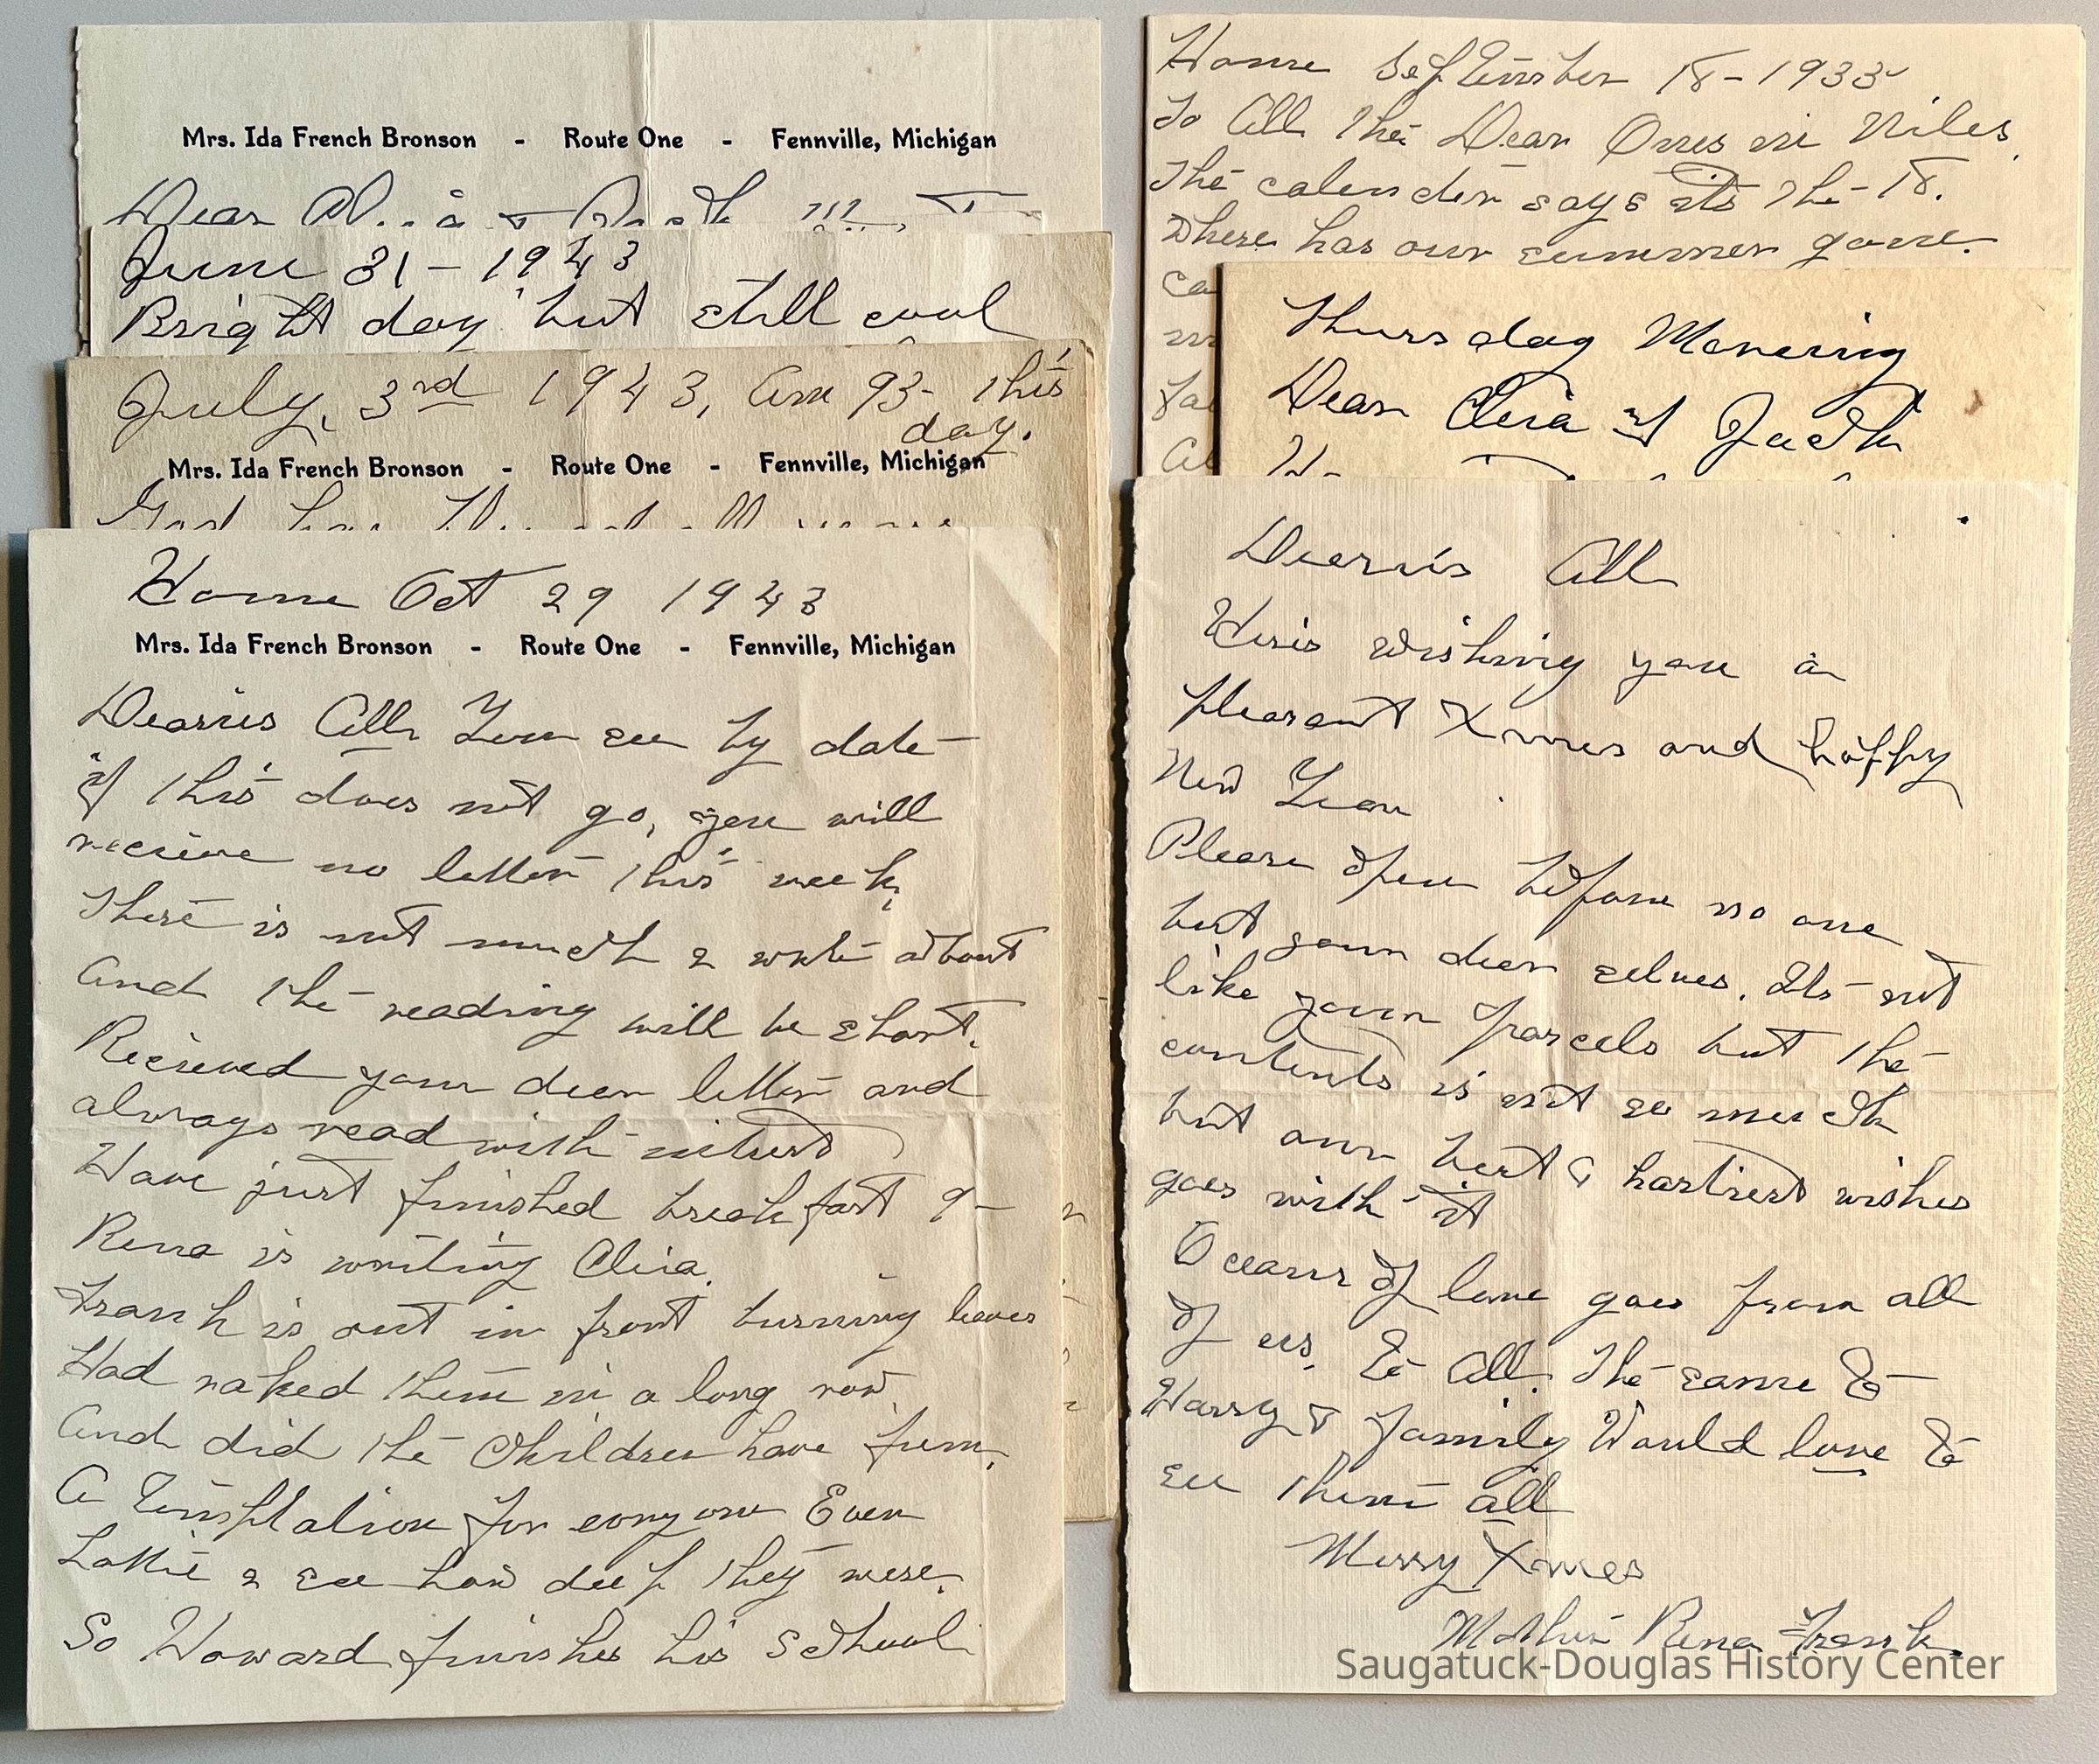 Mrs. Ida French Bronson - Route One - Fennville, Michigan
Dear
June 31 - 1943
Bright day but still cool
July, 3rd 1943, Am 93- this
day.
Mrs. Ida French Bronson - Route One - Fennville, Michigan
God has
Home Oct 29 1943
Mrs. Ida French Bronson - Route One - Fennville, Michigan
Dearies All You see by date
if this does not go, you will
recieve no letter this week,
There is not much 2 write about
And the reading will be short.
Recieved your dear letter and
always read with intrest
Have just finished breakfast 9-
Rena is writing Clria.
Frank is out in front burning leaves
Had raked them in a long row
And did the Children have fun,
A Temptation for every one Even
Lottie 2 see how deep they were.
So Howard finishes his School
Home September 18-1933
To All the Dear Ones in Niles,
The calender says its the 18.
Where has our summer gone.
Thursday Morning
Dear & Jack
Dearies All
Heres wishing you a
pleasant Xmas and happy
New Year
Please open before no one
but your dear selves. Its not
like your parcels but the
contents is not so much
but our best & hartiest wishes
goes with it
Oceans of love goes from all
of us. To All. The same To
Harry & family Would love To
see them all
Merry Xmas
Mother Rena Frank
Saugatuck-Douglas History Center